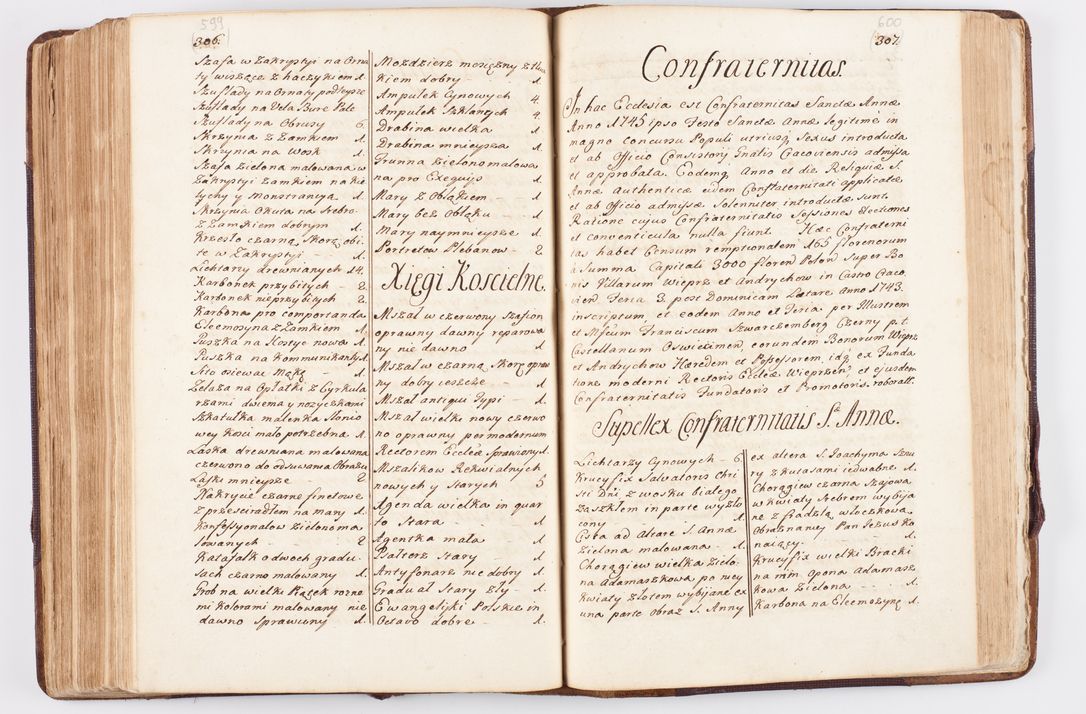 599
306.
Szafa w Zakrystyi na Orna
ty wiszące z haczykiem 1.
Szuflady na Ornaty podleysze
Szuflady na Vela Bure Pale
Szuflady na Obrusy 6.
Skrzynia z Zamkiem 1.
Skrzynia na Wosk 1.
Szafa Zielona malowana w
Zakrystyi Zamkiem na Kie
lychy y Monstrancyą 1.
Skrzynia Okuta na Srebro
z Zamkiem dobrym 1.
Krzesło czarną Skorą obi
te w Zakrystyi 1.
Lichtarzy drewnianych 14.
Karbonek przybitych 2.
Karbonek nieprzybitych 2.
Karbona pro comportanda
Eleemosyna z Zamkiem 1.
Puszka na Hostye nowa 1.
Puszka na Kommunikanty 1.
Sito osiewać Mąkę 1.
Zelaza na Opłatki z Cyrkula
rzami dwiema y nozyczkami
Szkatułka malenka Słonio
wey Kości mało potrzebna 1.
Laska drewniana malowana
czerwono do odsuwania Obrazu
Laski mnieysze 2
Nakrycie czarne fimetowe
z przescieradłem na mary 1.
Konfessyonałow Zielono ma
lowanych 2
Katafalk o dwoch gradu
sach czarno malowany 1.
Grob na wielki Piątek rozne
mi Kolorami malowany nie
dawno sprawiony 1.
Mozdzierz mosiężny z tłucz
kiem dobry 1.
Ampułek Cynowych 4.
Ampułek Szklanych 4.
Drabina wielka 1.
Drabina mnieysza 1.
Trunna Zielono malowa
na pro Exequijs 1.
Mary z Obłąkiem 1.
Mary bez Obłąku 1.
Mary naymnieysze 1.
Portretow Plebanow 2
Xięgi Koscielne.
Mszał w czerwony Szafion
oprawny dawny reparowa
ny nie dawno 1.
Mszał w czarną Skorę opraw
ny dobry ieszcze 1
Mszał antiqui Typi 1.
Mszał wielki nowy czerwo
no oprawny per modernum
Rectorem Ecclæ Sprawiony 1.
Mszalikow Rekwialnych
nowych y Starych 5
Agenda wielka in quar
to Stara 1
Agentka mała 1
Psałterz Stary 1
Antyfonarz nie dobry 1.
Graduał Stary zły 1.
Ewangeliyki Polskie in
Octavo dobre 1.
600
307.
Confraternitas.
In hac Ecclesia est Confraternitas Sanctæ Annæ
Anno 1745 ipso Festo Sanctæ Annæ legitime in
magno concursu Populi utriusq Sexus introducta
et ab Officio Consistorij Gnalis Cracoviensis admissa
et approbata. Eodemq Anno et die Reliquiæ S.
Annæ authenticæ eidem Confraternitati applicatæ
et ab Officio admissæ Solenniter introductæ sunt.
Ratione cujus Confraternitatis Sessiones Electiones
et conventicula nulla fiunt. Hæc Confraterni
tas habet Censum remptionalem 165 florenorum
a Summa Capitali 3000 floren Polon Super Bo
nis Villarum Wieprz et Andrychow in Castro Craco
vien Feria 3. post Dominicam Lætare Anno 1743.
inscriptum, et eodem Anno et Feria per Illustrem
et Mficum Franciscum Szwarczemberg Czerny p. t.
Castellanum Oswiecimen eorundem Bonorum Wieprz
et Andrychow Hæredem et Possessorem, idq ex Funda
tione moderni Rectoris Ecclæ Wieprzen et ejusdem
Confraternitatis Fundatoris et Promotoris roboratt.
Supellex Confraternitatis S. Annæ.
Lichtarzy Cynowych 6.
Krucyfix Salvatoris Chri
sti Dni z wosku białego
za szkłem in parte wyzło
cony 1.
Cista ad Altare S. Annæ
Zielona malowana 1.
Chorągiew wielka Zielo
na Adamaszkowa po niey
Kwiaty Złotem wybijane ex
una parte Obraz S. Anny
ex altera S. Joachyma Sznu
ry z Kutasami iedwabne 1.
Chorągiew czarna Szyiowa
w Kwiaty Srebrem wybija
ne z frędzlą włoczkową
Obraz na niey Pan Jezus Ko
naiący.
Krucyfix wielki Bracki
na nim opona Adamasz
kowa Zielona 1.
Karbona na Eleemosynę 1.